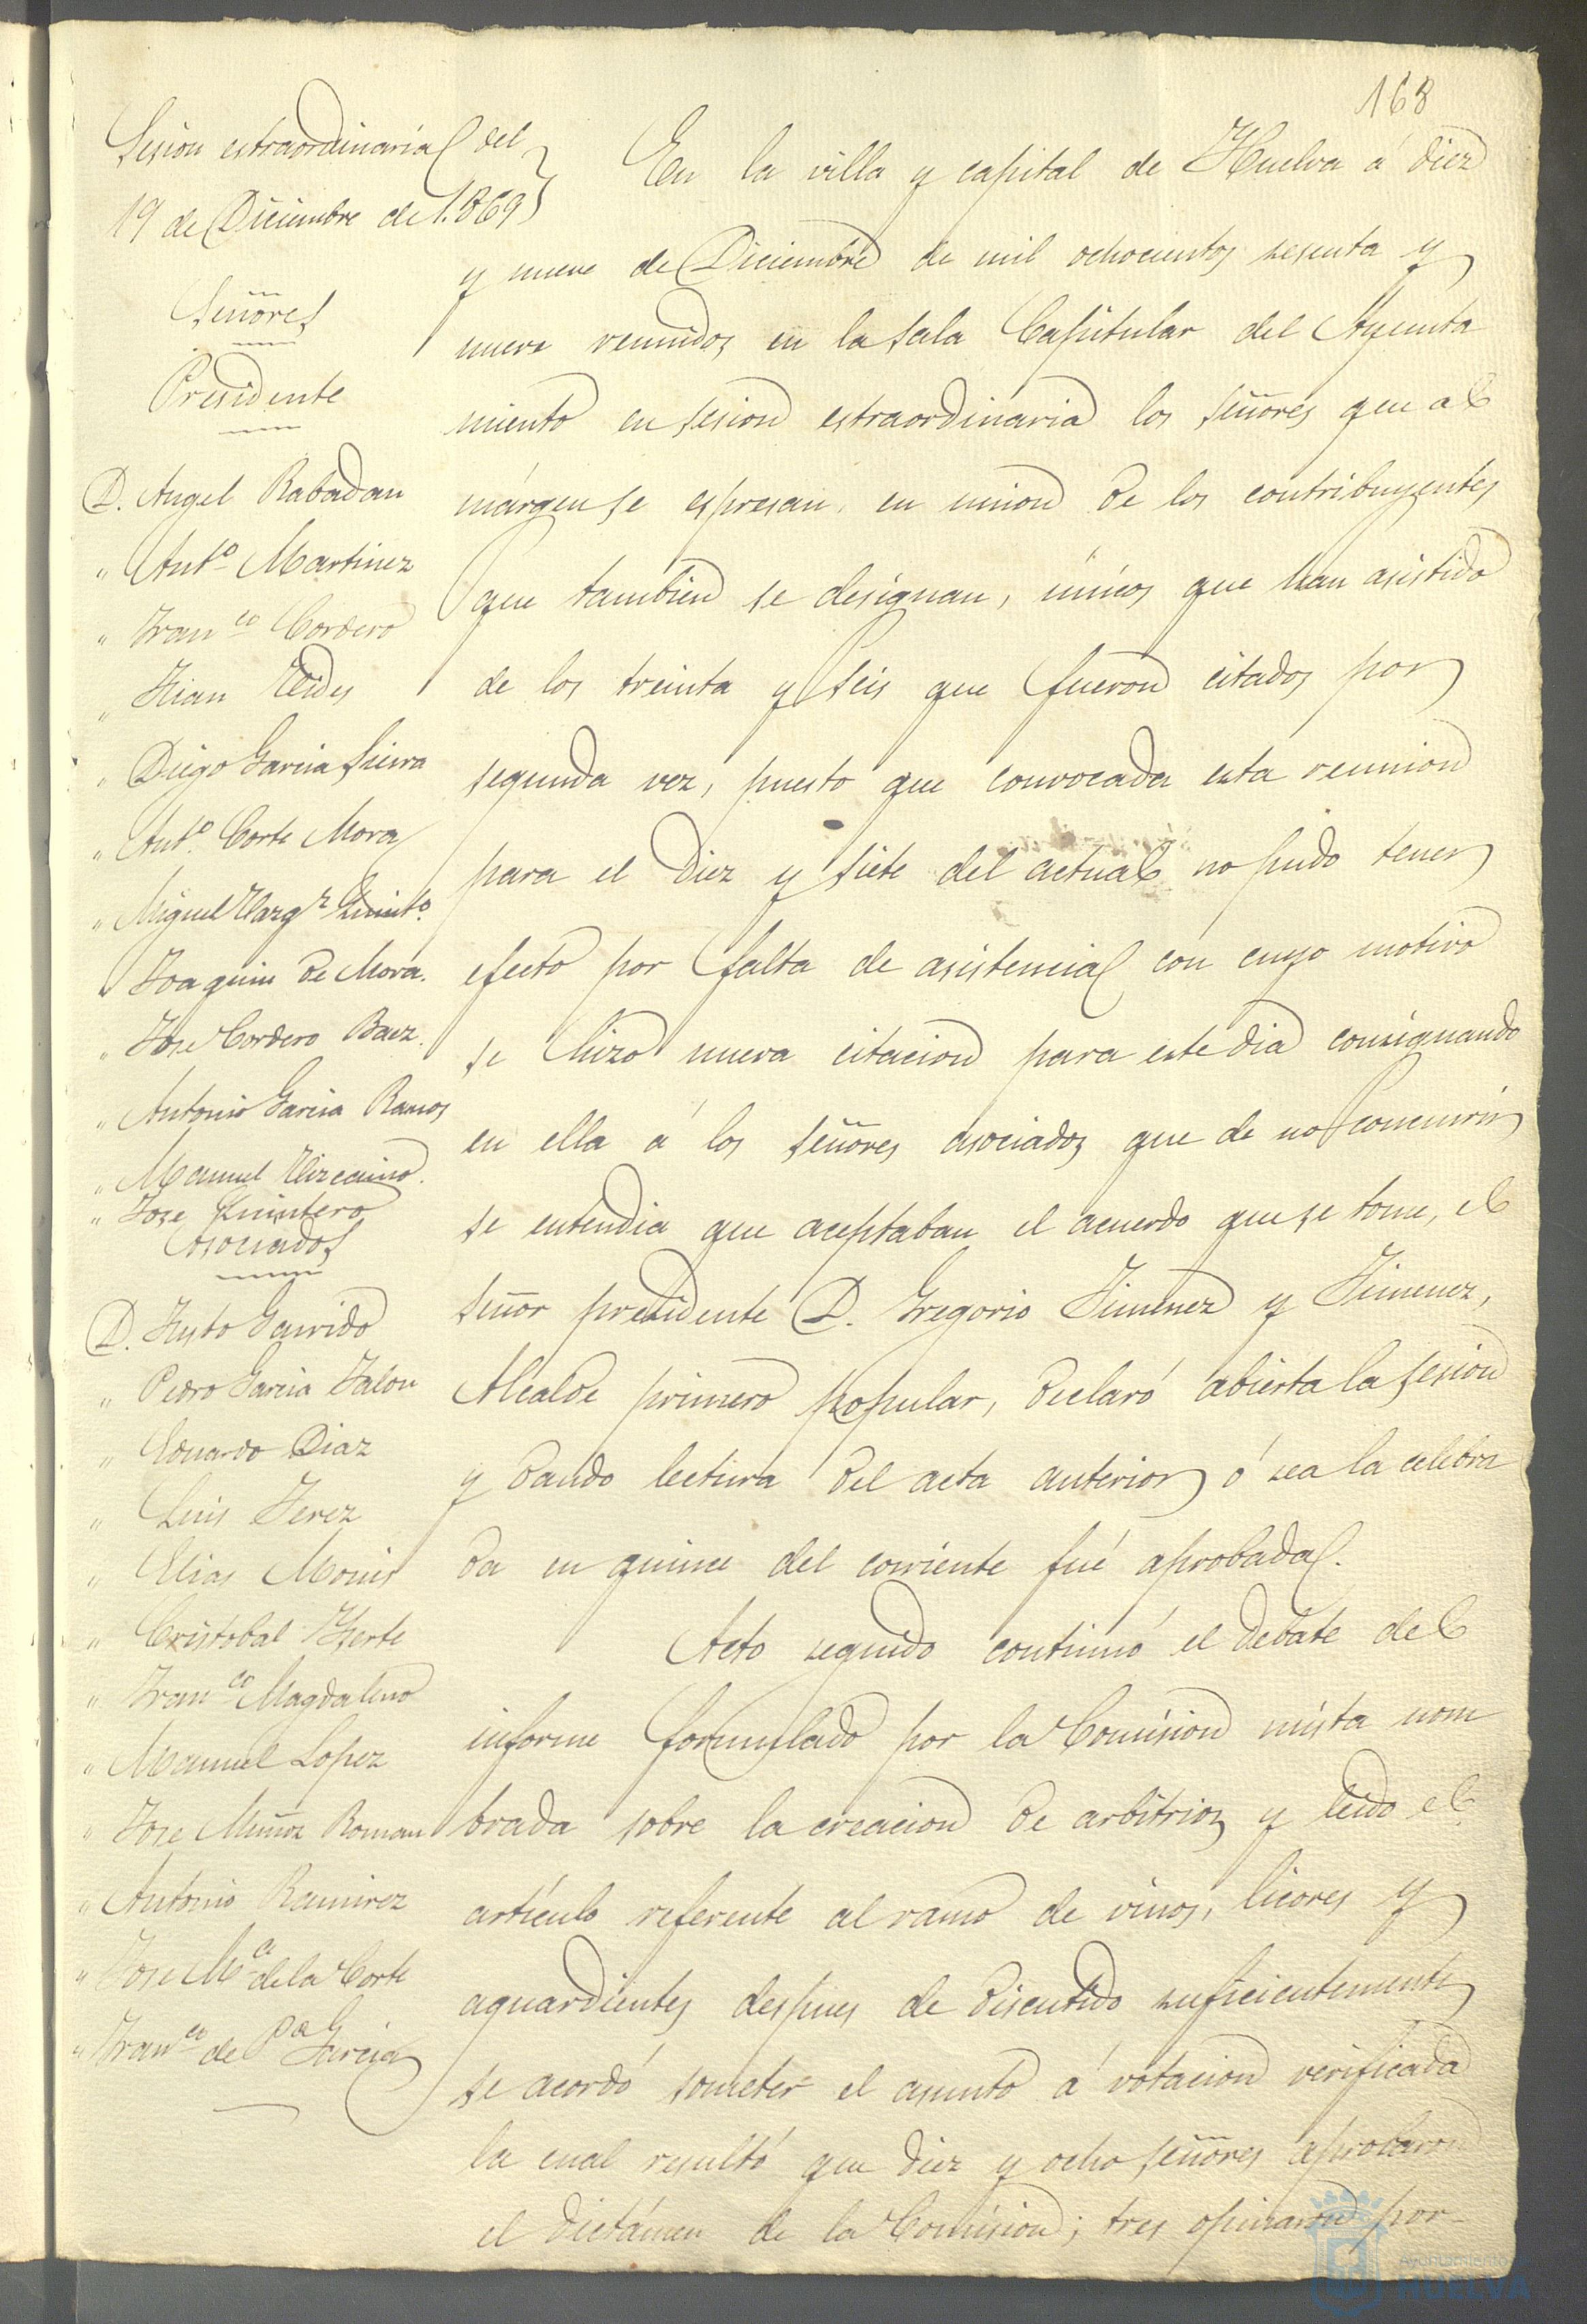 168
Sesion estraordinaria del
19 de Diciembre de 1.869
Señores
Presidente
D. Angel Rabadan
" Ant.º Martinez
" Fran.co Cordero
" Juan
" Diego Garcia Sierra
" Ant.º Corte Mora
" Miguel Quint.º
" Joaquin de Mora.
" Jose Cordero Baez.
" Antonio Garcia Ramos
" Manuel Vizcaino.
" Jose Quintero
Asociados
D. Justo Garrido
" Pedro Garcia Jalon
" Eduardo Diaz
" Luis Jerez
" Elias Monis
" Cristobal
" Fran.co Magdaleno
" Manuel Lopez
" Jose Muñoz Roman
" Antonio Ramirez
" Jose M.a de la Corte
" Fran.co de P.a Garcia
En la villa y capital de Huelva á diez
y nueve de Diciembre de mil ochocientos sesenta y
nueve reunidos en la sala Capitular del Ayunta
miento en sesion estraordinaria los señores que al
márgen se espresan, en union de los contribuyentes
que tambien se designan, únicos que han asistido
de los treinta y seis que fueron citados por
segunda vez, puesto que convocada esta reunion
para el diez y siete del actual no pudo tener
efecto por falta de asistencia con cuyo motivo
se hizo nueva citacion para este dia consignando
en ella á los señores asociados que de no concurrir
se entendia que aceptaban el acuerdo que se tome, el
señor presidente D. Gregorio Jimenez y Jimenez,
Alcalde primero popular, declaró abierta la sesion
y dando lectura del acta anterior ó sea la celebra
da en quince del corriente fué aprobada.
Acto seguido continuó el debate del
informe formulado por la Comision mista nom
brada sobre la creacion de arbitrios y leido el
artículo referente al ramo de vinos, licores y
aguardientes despues de discutido suficientemente
se acordó someter el asunto á votacion verificada
la cual resultó que diez y ocho señores aprobaron
el dictámen de la Comision; tres opinaron por
Ayuntamiento
HUELVA